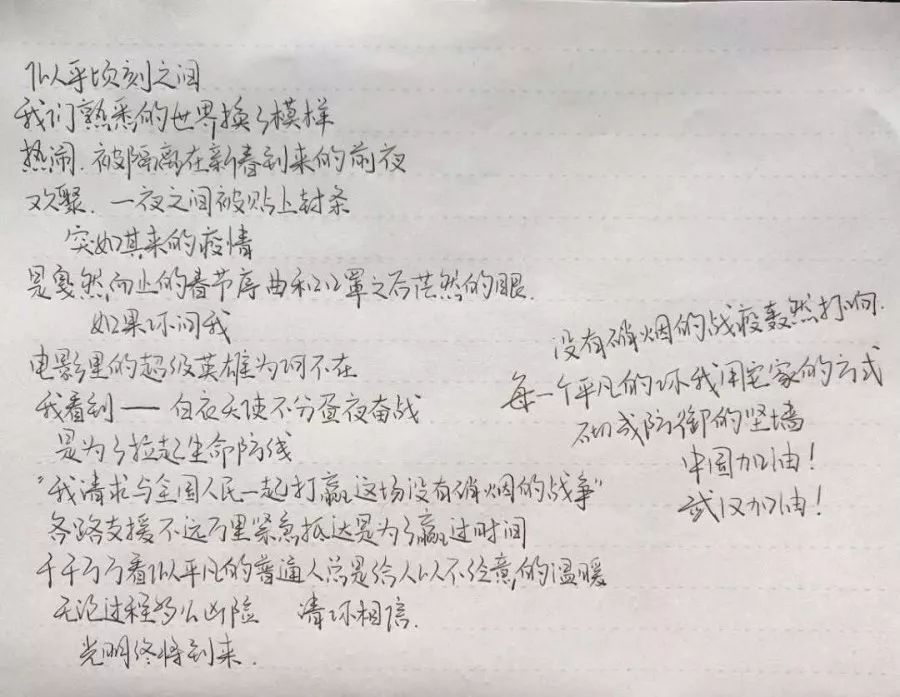 似乎顷刻之间
我们熟悉的世界换了模样
热闹.被隔离在新春到来的前夜
欢聚.一夜之间被贴上封条
突如其来的疫情
是戛然而止的春节序曲和口罩之后茫然的眼.
如果你问我
电影里的超级英雄为何不在
我看到——白衣天使不分昼夜奋战
是为了拉起生命防线
"我请求与全国人民一起打赢这场没有硝烟的战争"
各路支援不远万里紧急抵达是为了赢过时间
千千万万看似平凡的普通人总是给人以不经意的温暖
无论过程多么凶险 请你相信.
光明终将到来.
没有硝烟的战疫轰然打响.
每一个平凡的你我用宅家的方式
砌成防御的坚墙
中国加油!
武汉加油!